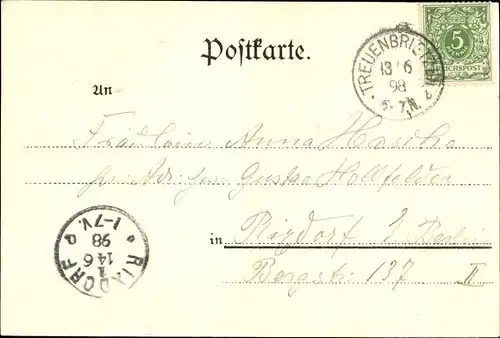 Postkarte.
TREUENBRIETZEN
13 6
98
6-7N.
5
REICHSPOST
An
Fräulein Anna Hascha
per Adr. Herrn Gustav Hollfelder
in Rixdorf b Berlin
Bergstr 137 II
RIXDORF
1
14 6
98
1-7V.